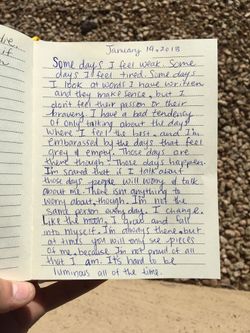 January 19, 2018
Some days I feel weak. Some
days I feel tired. Some days
I look at words I have written
and they make sence, but I
don't feel their passion or their
bravery. I have a bad tendency
of only talking about the days
where I feel the best, and I'm
embarassed by the days that feel
grey & empty. Those days are
there though. Those days happen.
I'm scared that if I talk about
those days people will worry & talk
about me. There isn't anything to
worry about, though. I'm not the
same person everyday. I change.
Like the moon, I grow and fall
into myself. I'm always there, but
at times you will only see pieces
of me, because I'm not proud of all
that I am. It's hard to be
luminous all of the time.